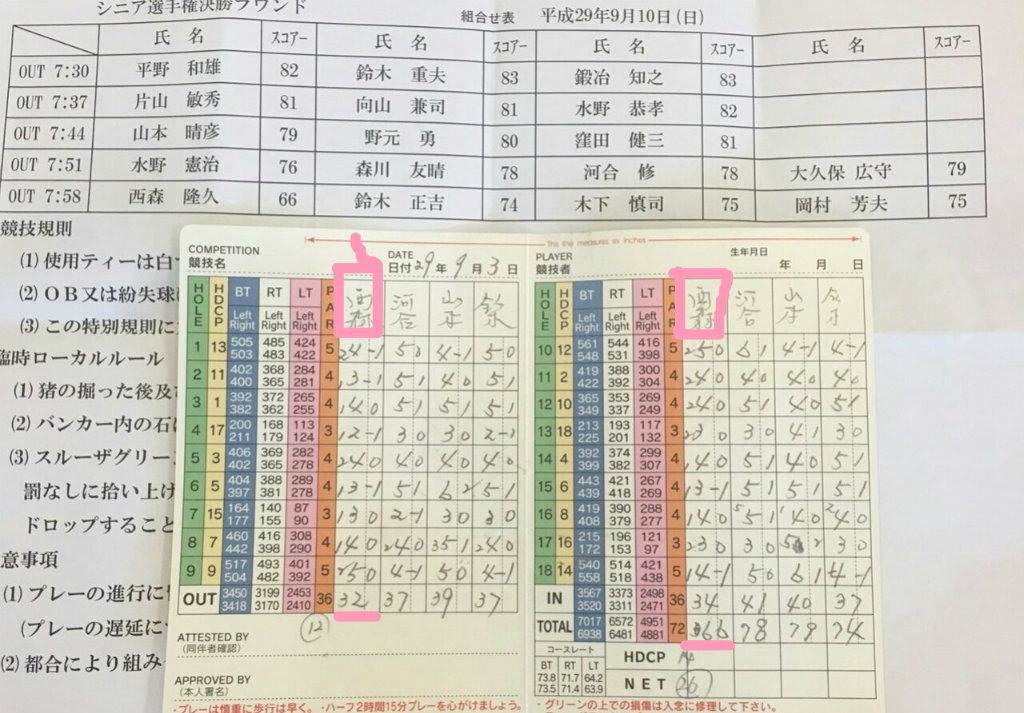 シニア選手権決勝ラウンド 組合せ表 平成29年9月10日(日)
氏 名 スコアー 氏 名 スコアー 氏 名 スコアー 氏 名 スコアー
OUT 7:30 平野 和雄 82 鈴木 重夫 83 鍛冶 知之 83
OUT 7:37 片山 敏秀 81 向山 兼司 81 水野 恭孝 82
OUT 7:44 山本 晴彦 79 野元 勇 80 窪田 健三 81
OUT 7:51 水野 憲治 76 森川 友晴 78 河合 修 78 大久保 広守 79
OUT 7:58 西森 隆久 66 鈴木 正吉 74 木下 慎司 75 岡村 芳夫 75
競技規則
(1) 使用ティーは白
(2) OB又は紛失球
(3) この特別規則に
臨時ローカルルール
(1) 猪の掘った後及
(2) バンカー内の石
(3) スルーザグリー
罰なしに拾い上げ
ドロップすること
意事項
(1) プレーの進行に
(プレーの遅延に
(2) 都合により組み
This line measures six inches
COMPETITION
競技名
DATE
日付 29年 9月 3日
HOLE HDCP BT RT LT PAR 西森 河合 山本 鈴木
Left Right Left Right Left Right
1 13 505 503 485 483 424 422 5 24-1 50 4-1 50
2 11 402 400 368 365 284 281 4 13-1 51 40 51
3 1 392 382 372 362 265 255 4 140 51 51 51
4 17 200 211 168 179 113 124 3 12-1 30 30 2-1
5 3 406 402 369 365 282 278 4 240 40 40 40
6 5 404 397 388 381 289 278 4 13-1 51 62 51
7 15 164 177 140 155 87 90 3 130 2-1 30 30
8 7 460 442 416 398 308 290 4 140 240 351 240
9 9 517 504 493 482 401 392 5 250 4-1 50 4-1
OUT 3450 3418 3199 3170 2453 2410 36 32 37 39 37
12
ATTESTED BY
(同伴者確認)
APPROVED BY
(本人署名)
・プレーは慎重に歩行は早く。・ハーフ2時間15分プレーを心がけましょう。
PLAYER
競技者
生年月日
年 月 日
HOLE HDCP BT RT LT PAR 西森 河合 山本 鈴木
Left Right Left Right Left Right
10 12 561 548 544 531 416 398 5 250 61 4-1 4-1
11 2 419 422 388 392 300 304 4 240 40 40 40
12 10 365 349 353 337 269 249 4 240 51 40 51
13 18 213 225 193 201 117 132 3 230 30 41 30
14 4 392 399 374 382 299 307 4 140 51 40 51
15 6 443 439 421 418 267 269 4 13-1 51 51 51
16 8 419 408 390 379 288 277 4 140 51 40 40
17 16 215 172 196 153 121 97 3 230 30 30
18 14 540 558 514 518 421 438 5 14-1 50 61 4-1
IN 3567 3520 3373 3311 2498 2471 36 34 41 40 37
TOTAL 7017 6938 6572 6481 4951 4881 72 66 78 79 74
コースレート
BT RT LT
73.8 71.7 64.2
73.5 71.4 63.9
HDCP
NET
・グリーンの上での損傷は入念に修理して下さい。